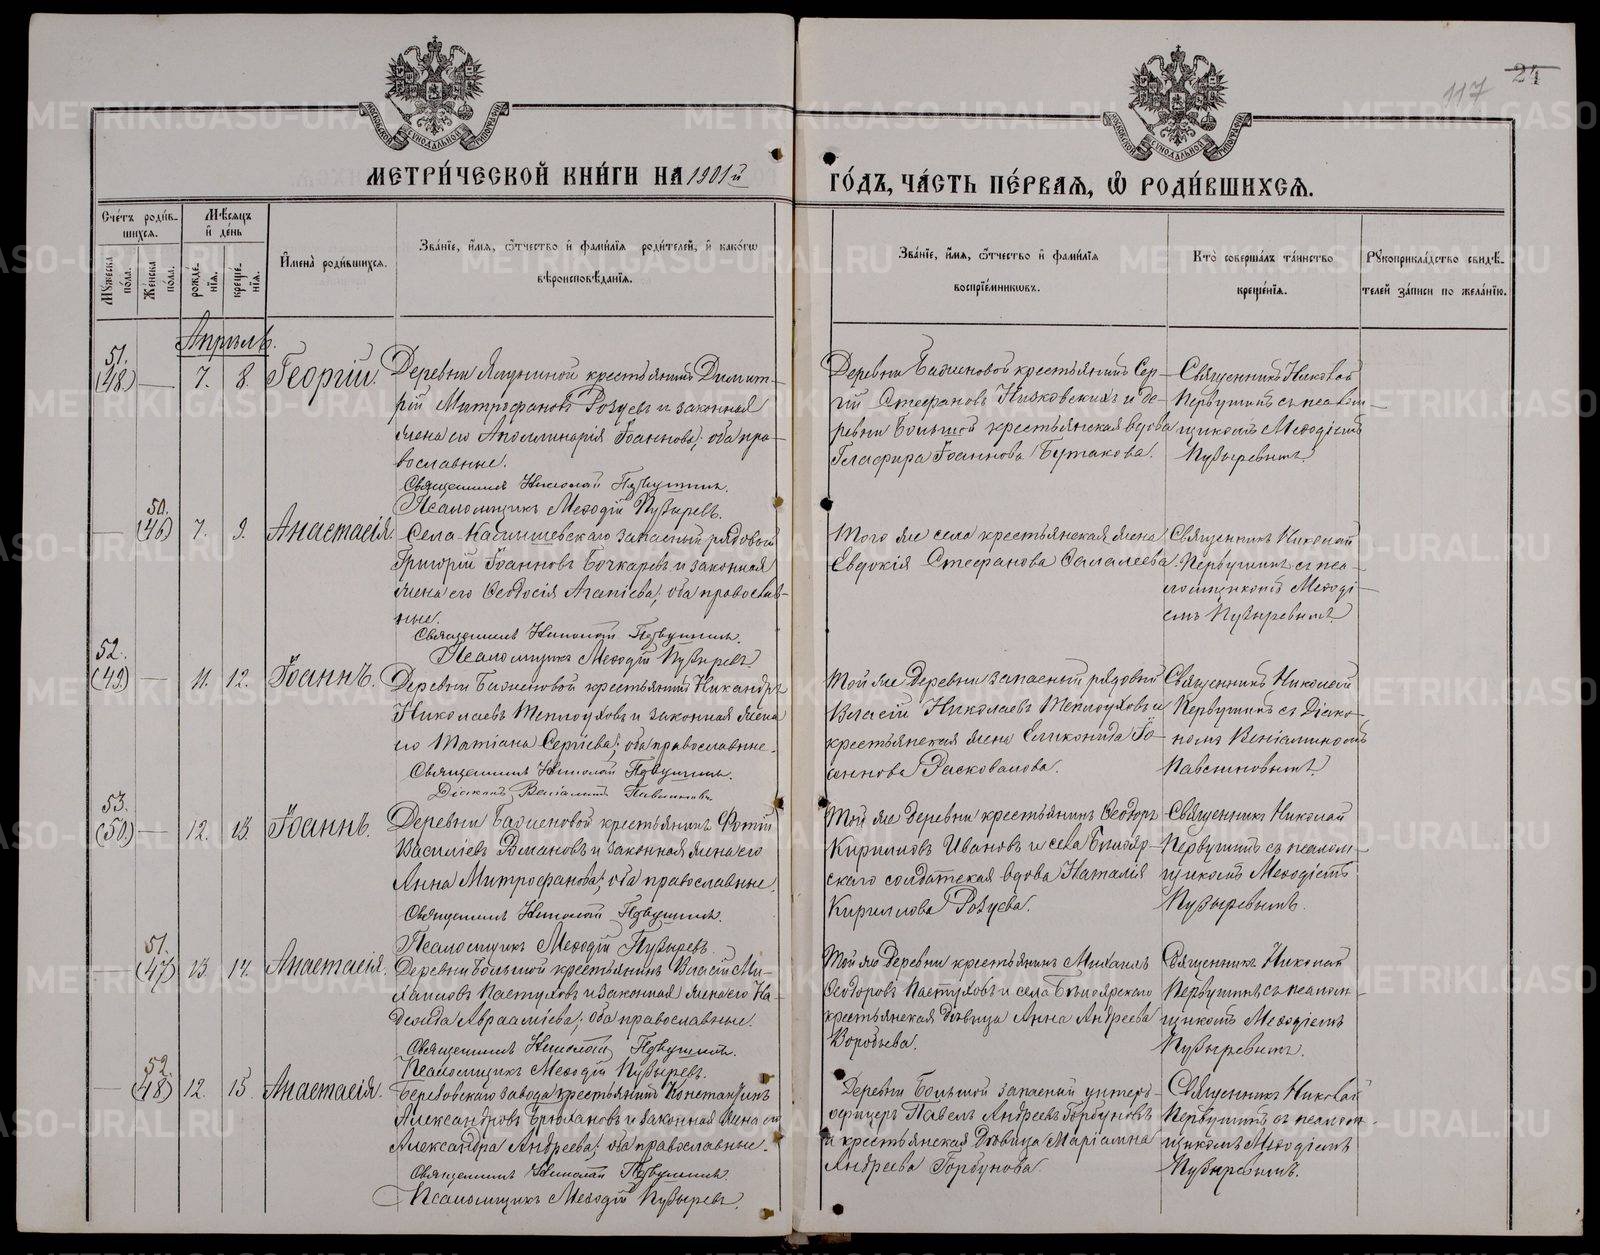 24
117
МЕТРИ́ЧЕСКОЙ КНИ́ГИ НА 1901й
ГО́ДЪ, ЧА́СТЬ ПЕ́РВАЯ, Ѿ РОДИ́ВШИХСЯ.
Сче́тъ роди́в-
шихся.
Му́жеска по́ла.
Же́нска по́ла.
Мѣ́сяцъ
и̂ де́нь
рожде́-
нїя.
креще́-
нїя.
И̂мена̀ роди́вшихся.
Зва́нїе, и̂́мя, ѻ҆́тчество и̂ фами́лїя роди́телей, и̂ како́гѡ
вѣроисповѣ́данїя.
Зва́нїе, и̂́мя, ѻ҆́тчество и̂ фами́лїя
воспрїе́мниковъ.
Кто̀ соверша́лъ та́инство
креще́нїя.
Рꙋкоприкла́дство свидѣ́-
телей за́писи по жела́нїю.
Апрѣль.
51.
(48) — 7. 8. Георгій.
Деревни крестьянинъ Димит-
рій Митрофановъ Розуевъ и законная
жена его Аполлинарія Іоаннова; оба пра-
вославные.
Священникъ Николай Первушинъ.
Псаломщикъ Меѳодій Пузыревъ.
Деревни Баженовой крестьянинъ Сер-
гій Стефановъ Низковскихъ и де-
ревни Большой крестьянская вдова
Глафира Іоаннова Бутакова.
Священникъ Николай
Первушинъ съ псалом-
щикомъ Меѳодіемъ
Пузыревымъ.
50.
— (46) 7. 9. Анастасія.
Села запасный рядовый
Григорій Іоанновъ Бочкаревъ и законная
жена его Ѳеодосія Агапіева; оба православ-
ные.
Священникъ Николай Первушинъ.
Псаломщикъ Меѳодій Пузыревъ.
Того же села крестьянская жена
Евдокія Стефанова
Священникъ Николай
Первушинъ съ пса-
ломщикомъ Меѳоді-
емъ Пузыревымъ
52.
(49) — 11. 12. Іоаннъ.
Деревни Баженовой крестьянинъ Никандръ
Николаевъ Теплоуховъ и законная жена
его Татіана Сергіева; оба православные.
Священникъ Николай Первушинъ.
Діаконъ Веніаминъ Павлиновъ.
Той же деревни запасный рядовый
Власій Николаевъ Теплоуховъ и
крестьянская жена Еликонида Іо-
аннова Расковалова.
Священникъ Николай
Первушинъ съ Діако-
номъ Веніаминомъ
Павлиновымъ.
53.
(50) — 12. 13. Іоаннъ.
Деревни Баженовой крестьянинъ Фотій
Василіевъ Романовъ и законная жена его
Анна Митрофанова; оба православные.
Священникъ Николай Первушинъ.
Псаломщикъ Меѳодій Пузыревъ.
Той же деревни крестьянинъ Ѳеодоръ
Кирилловъ Ивановъ и села Бѣлояр-
скаго солдатская вдова Наталія
Кириллова Розуева.
Священникъ Николай
Первушинъ съ псалом-
щикомъ Меѳодіемъ
Пузыревымъ.
51.
— (47) 13. 14. Анастасія.
Деревни Большой крестьянинъ Власій Ми-
хаиловъ Пастуховъ и законная жена его На-
дежда Авраамiева; оба православные.
Священникъ Николай Первушинъ.
Псаломщикъ Меѳодій Пузыревъ.
Той же деревни крестьянинъ Михаилъ
Ѳеодоровъ Пастуховъ и села Бѣлоярскаго
крестьянская дѣвица Анна Андреева
Воробьева.
Священникъ Николай
Первушинъ съ псалом-
щикомъ Меѳодіемъ
Пузыревымъ.
52.
— (48) 12. 15. Анастасія.
Березовскаго завода крестьянинъ Константинъ
Александровъ Брюхановъ и законная жена его
Александра Андреева; оба православные.
Священникъ Николай Первушинъ.
Псаломщикъ Меѳодій Пузыревъ.
Деревни Большой запасный унтеръ-
офицеръ Павелъ Андреевъ Горбуновъ
и крестьянская дѣвица Маріамна
Андреева Горбунова.
Священникъ Николай
Первушинъ съ псалом-
щикомъ Меѳодіемъ
Пузыревымъ.
METRIKI.GASO-URAL.RU